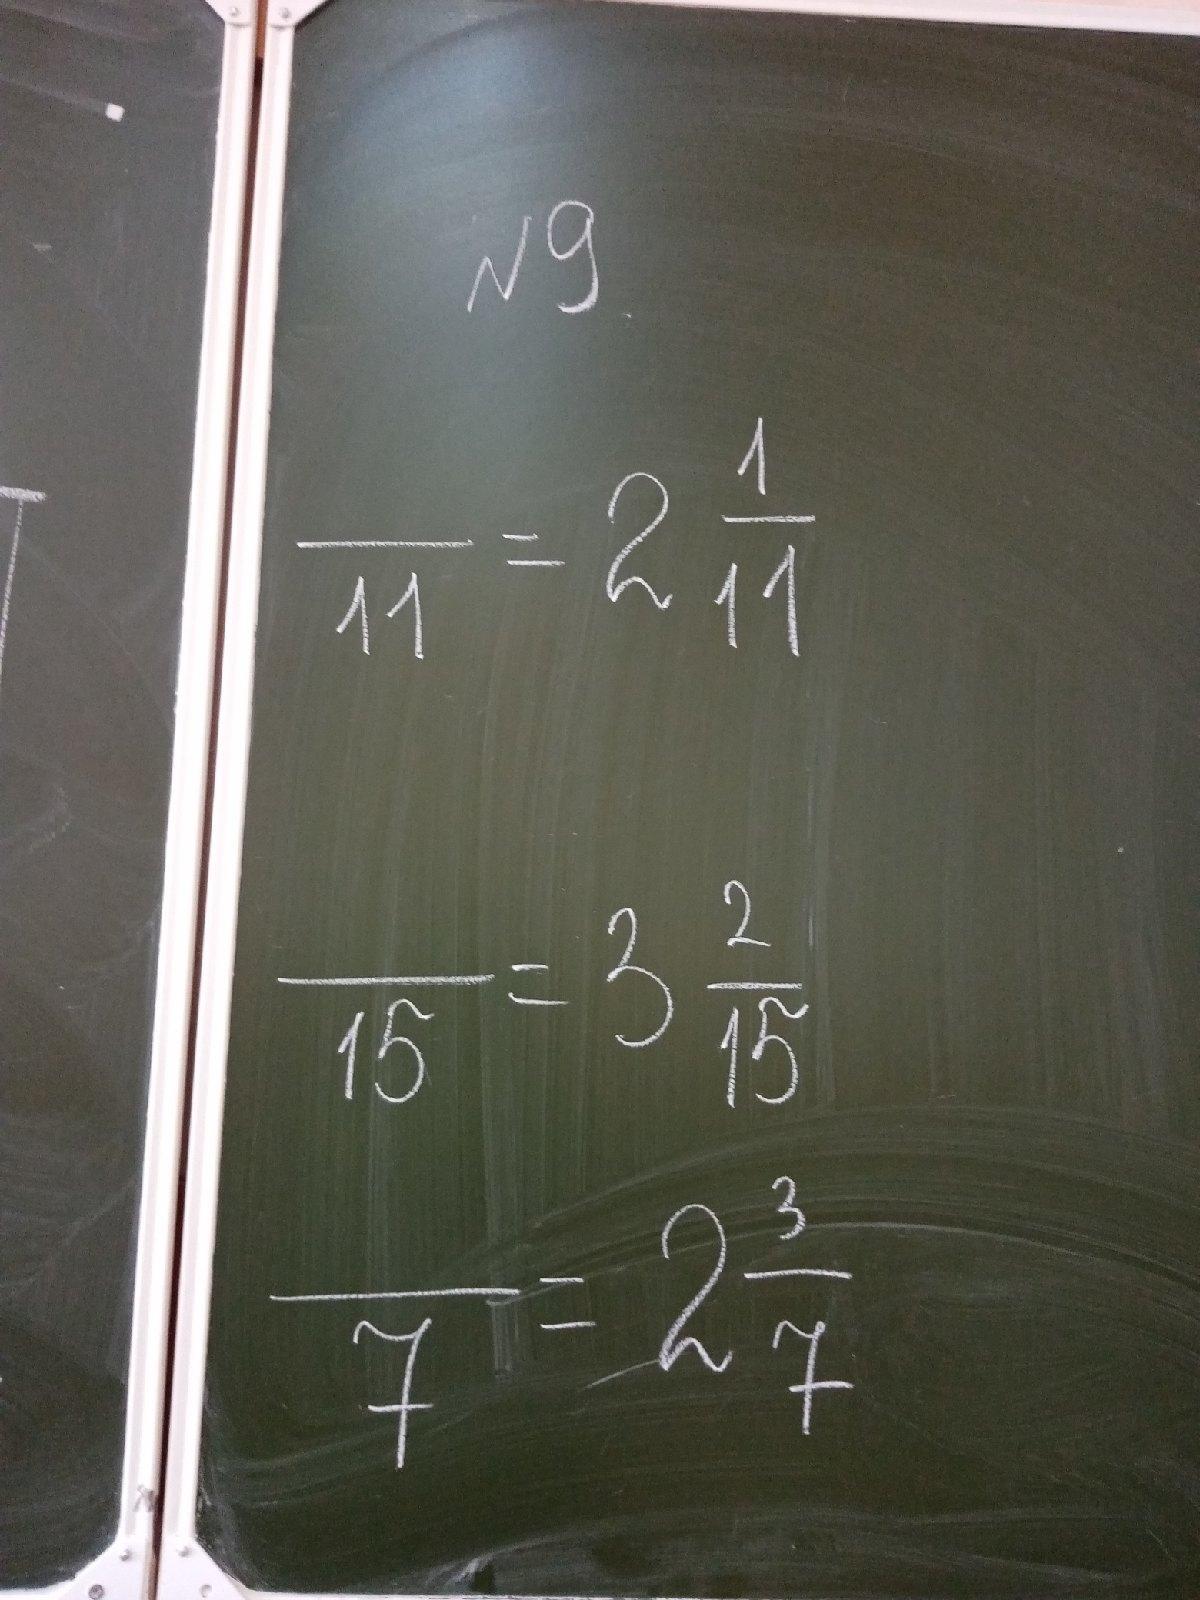 N9.
/11 = 2 1/11
/15 = 3 2/15
/7 = 2 3/7